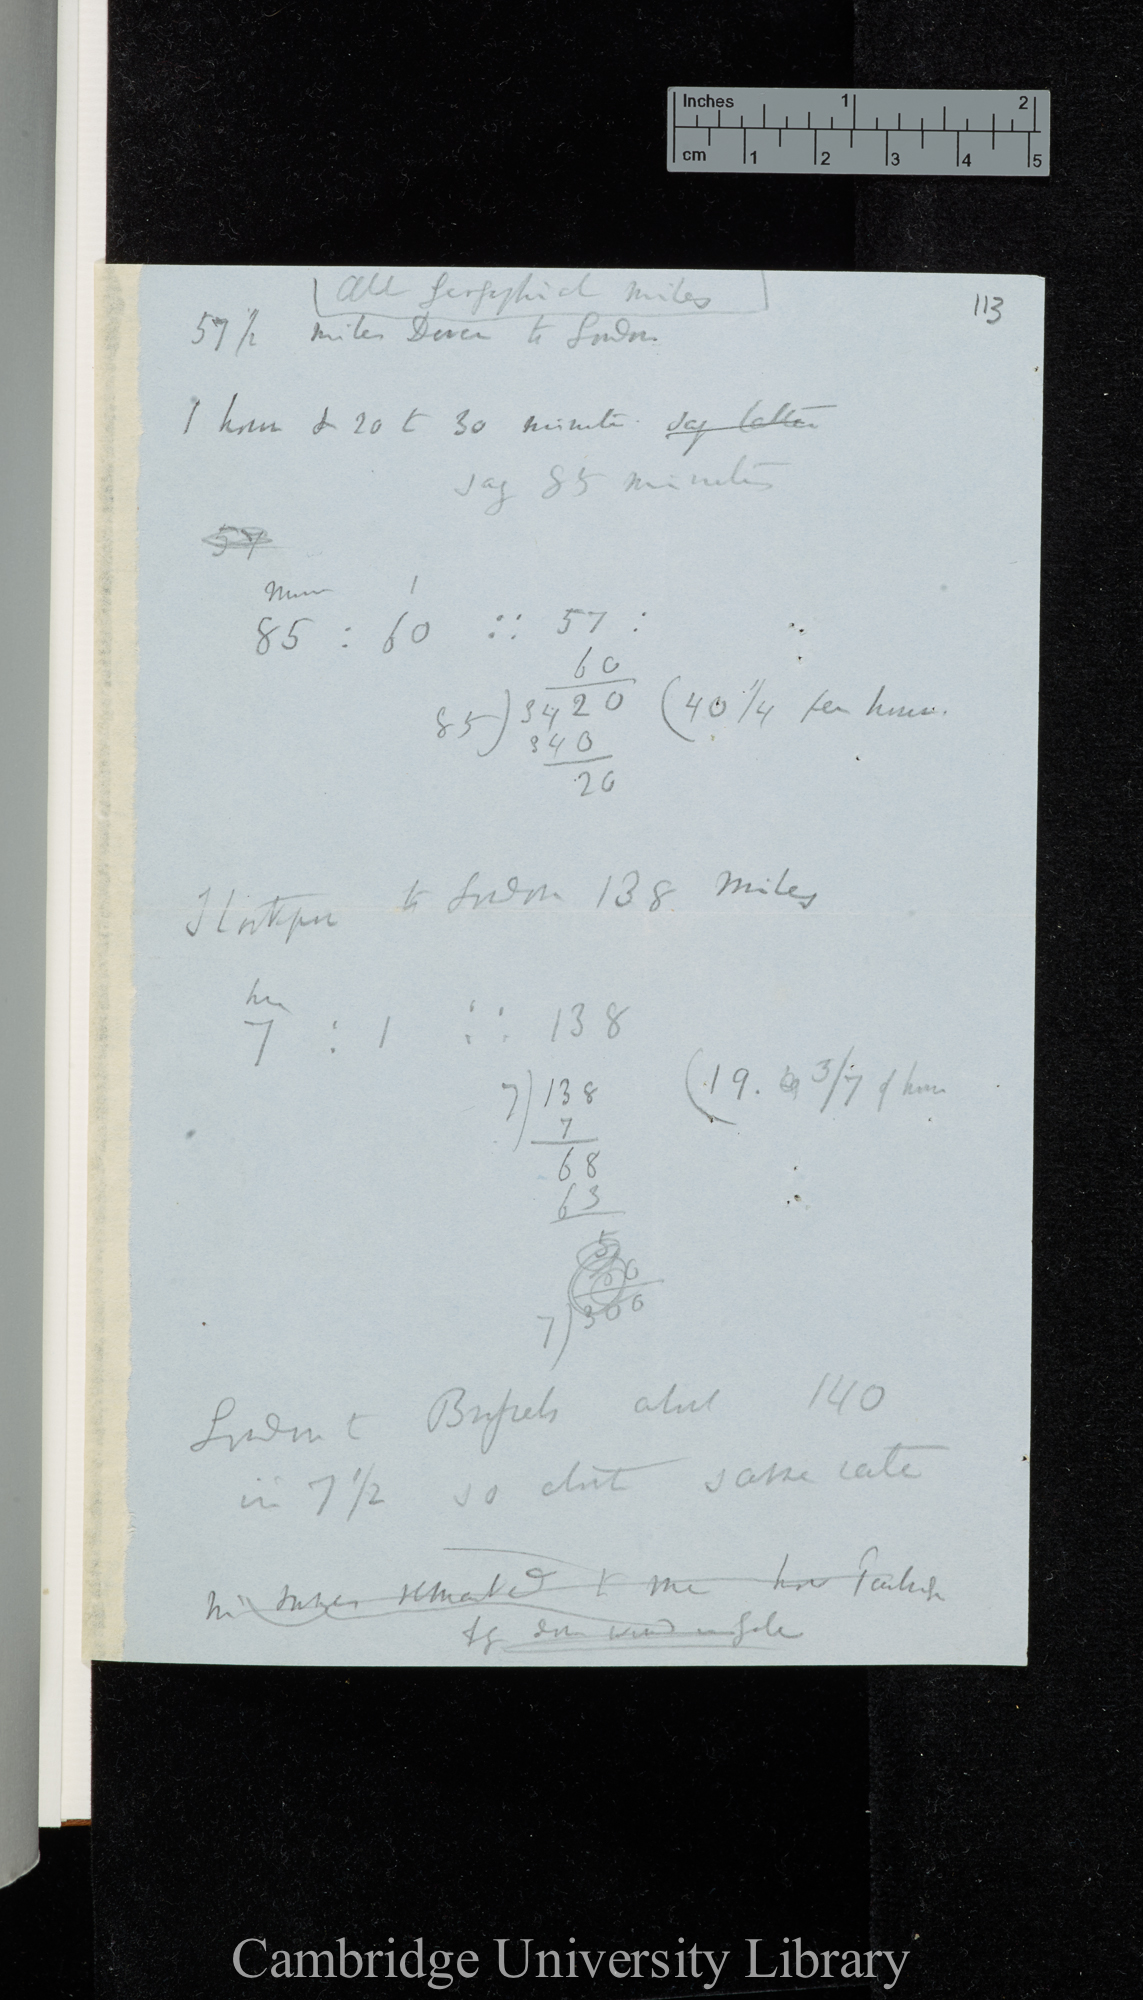 Inches 1 2
cm 1 2 3 4 5
113
All Geographical miles
57 1/2 miles Dover to London
1 hour & 20 to 30 minutes. say latter
say 85 minutes
57
1
85 : 60 :: 57 :
60
85) 3420 (40 1/4 per hour.
340
20
to London 138 miles
7 : 1 :: 138
7) 138 (19. 3/7 of hour
7
68
63
5
60
7) 300
London to Brussels about 140
in 7 1/2 so about same rate
remarked to me how
Cambridge University Library